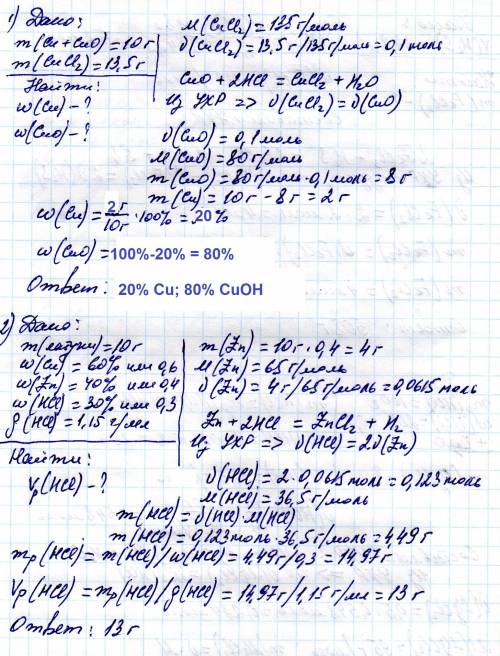 1) Дано:
m(Cu+CuO)=10г
m(CuCl₂)=13,5г
Найти:
w(Cu)-?
w(CuO)-?
M(CuCl₂)=135г/моль
ϑ(CuCl₂)=13,5г/135г/моль=0,1моль
CuO+2HCl=CuCl₂+H₂O
Из УХР => ϑ(CuCl₂)=ϑ(CuO)
ϑ(CuO)=0,1моль
M(CuO)=80г/моль
m(CuO)=80г/моль·0,1моль=8г
m(Cu)=10г-8г=2г
w(Cu)=2г/10г·100%=20%
w(CuO)=100%-20% = 80%
Ответ: 20% Cu; 80% CuOH
2) Дано:
m(латуни)=10г
w(Cu)=60% или 0,6
w(Zn)=40% или 0,4
w(HCl)=30% или 0,3
ρ(HCl)=1,15г/мл
Найти:
Vр(HCl)-?
m(Zn)=10г·0,4=4г
M(Zn)=65г/моль
ϑ(Zn)=4г/65г/моль=0,0615моль
Zn+2HCl=ZnCl₂+H₂
Из УХР => ϑ(HCl)=2ϑ(Zn)
ϑ(HCl)=2·0,0615моль=0,123моль
M(HCl)=36,5г/моль
m(HCl)=ϑ(HCl)·M(HCl)
m(HCl)=0,123моль·36,5г/моль=4,49г
mр(HCl)=m(HCl)/w(HCl)=4,49г/0,3=14,97г
Vр(HCl)=mр(HCl)/ρ(HCl)=14,97г/1,15г/мл=13г
Ответ: 13г